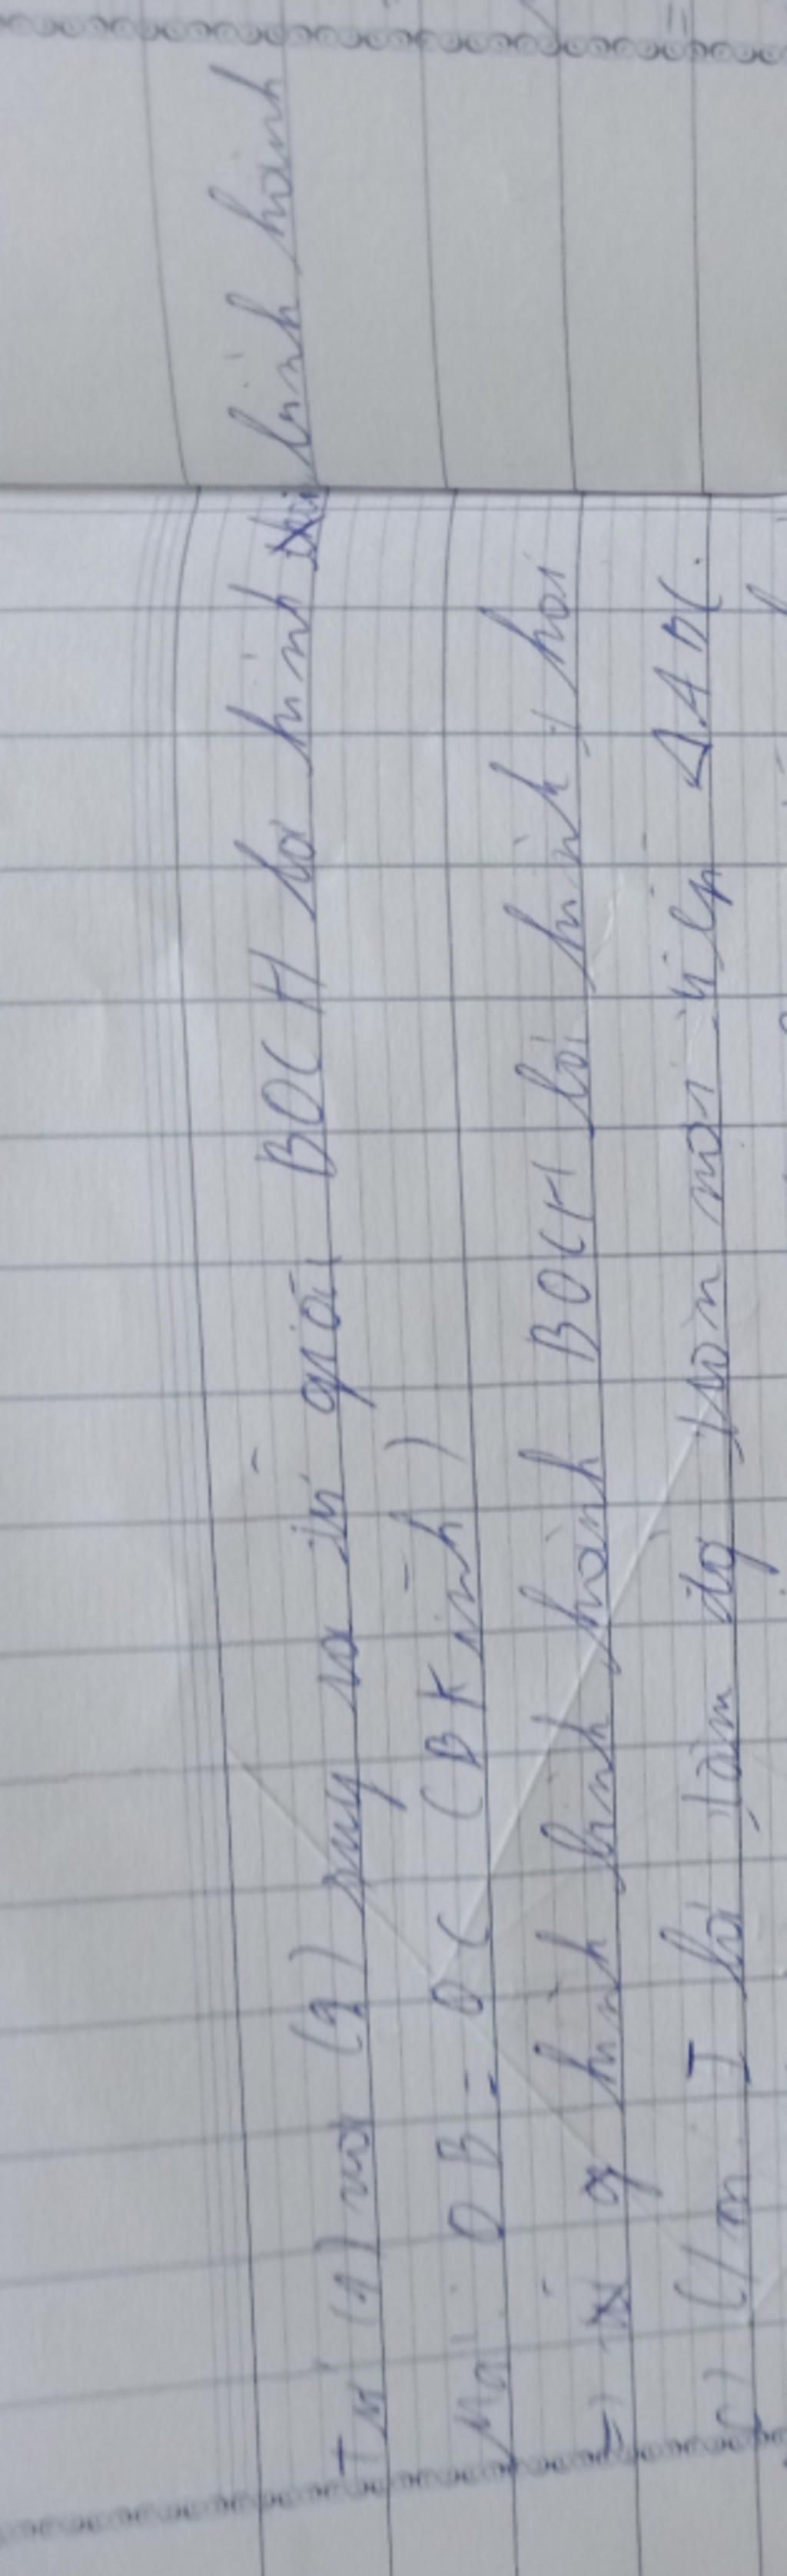 Từ (1) và (2) suy ra tứ giác BOCH là hình bình hành
Mà OB = OC (BKính)
=> g hình bình hành BOCH là hình thoi
c) C/m I là tâm đg tròn nội tiếp ΔABC.